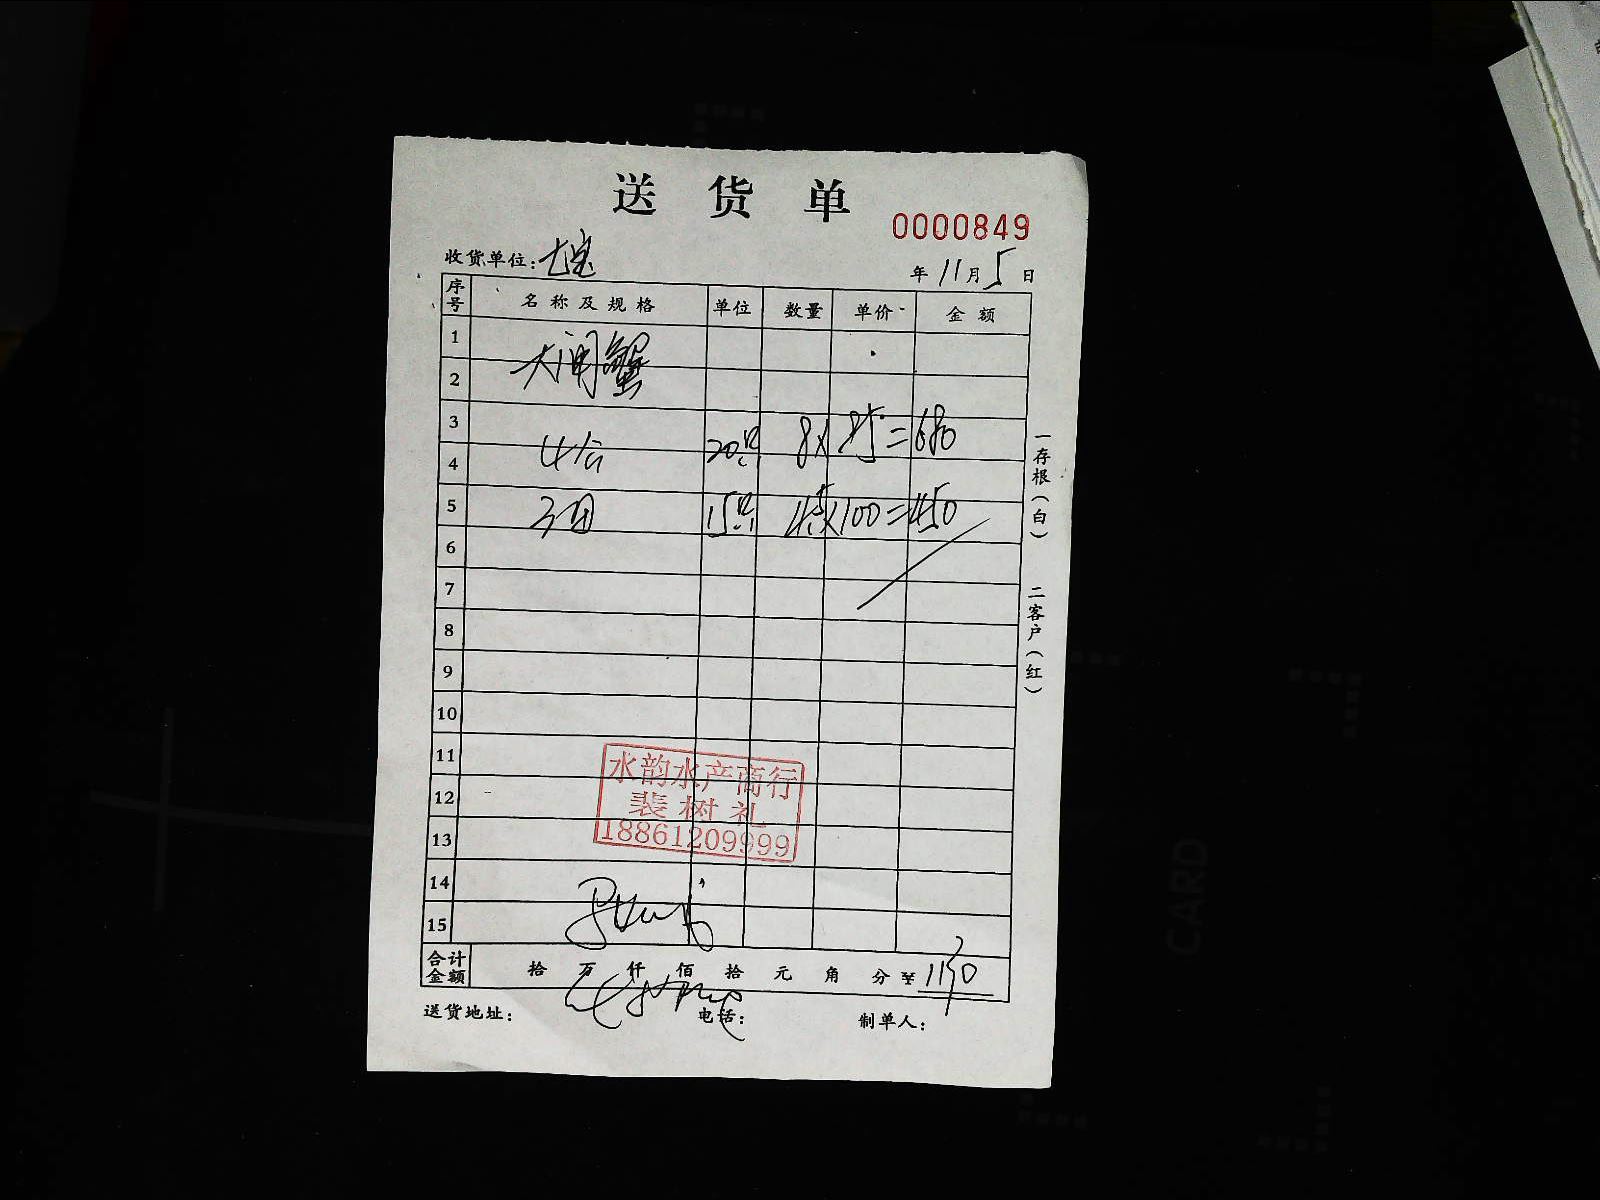 送货单
0000849
收货单位: 年 11 月 5 日
序号 名称及规格 单位 数量 单价 金额
1
大闸蟹
2
3
4 4公 20只 8 x 85 = 680
5 3母 15只 4.5 x 100 = 450
6
7
8
9
10
11
12
13
14
15
水韵水产商行
裴树礼
18861209999
合计金额 拾 万 仟 佰 拾 元 角 分 ¥ 1130
送货地址: 电话: 制单人:
一存根(白) 二客户(红)
CARD